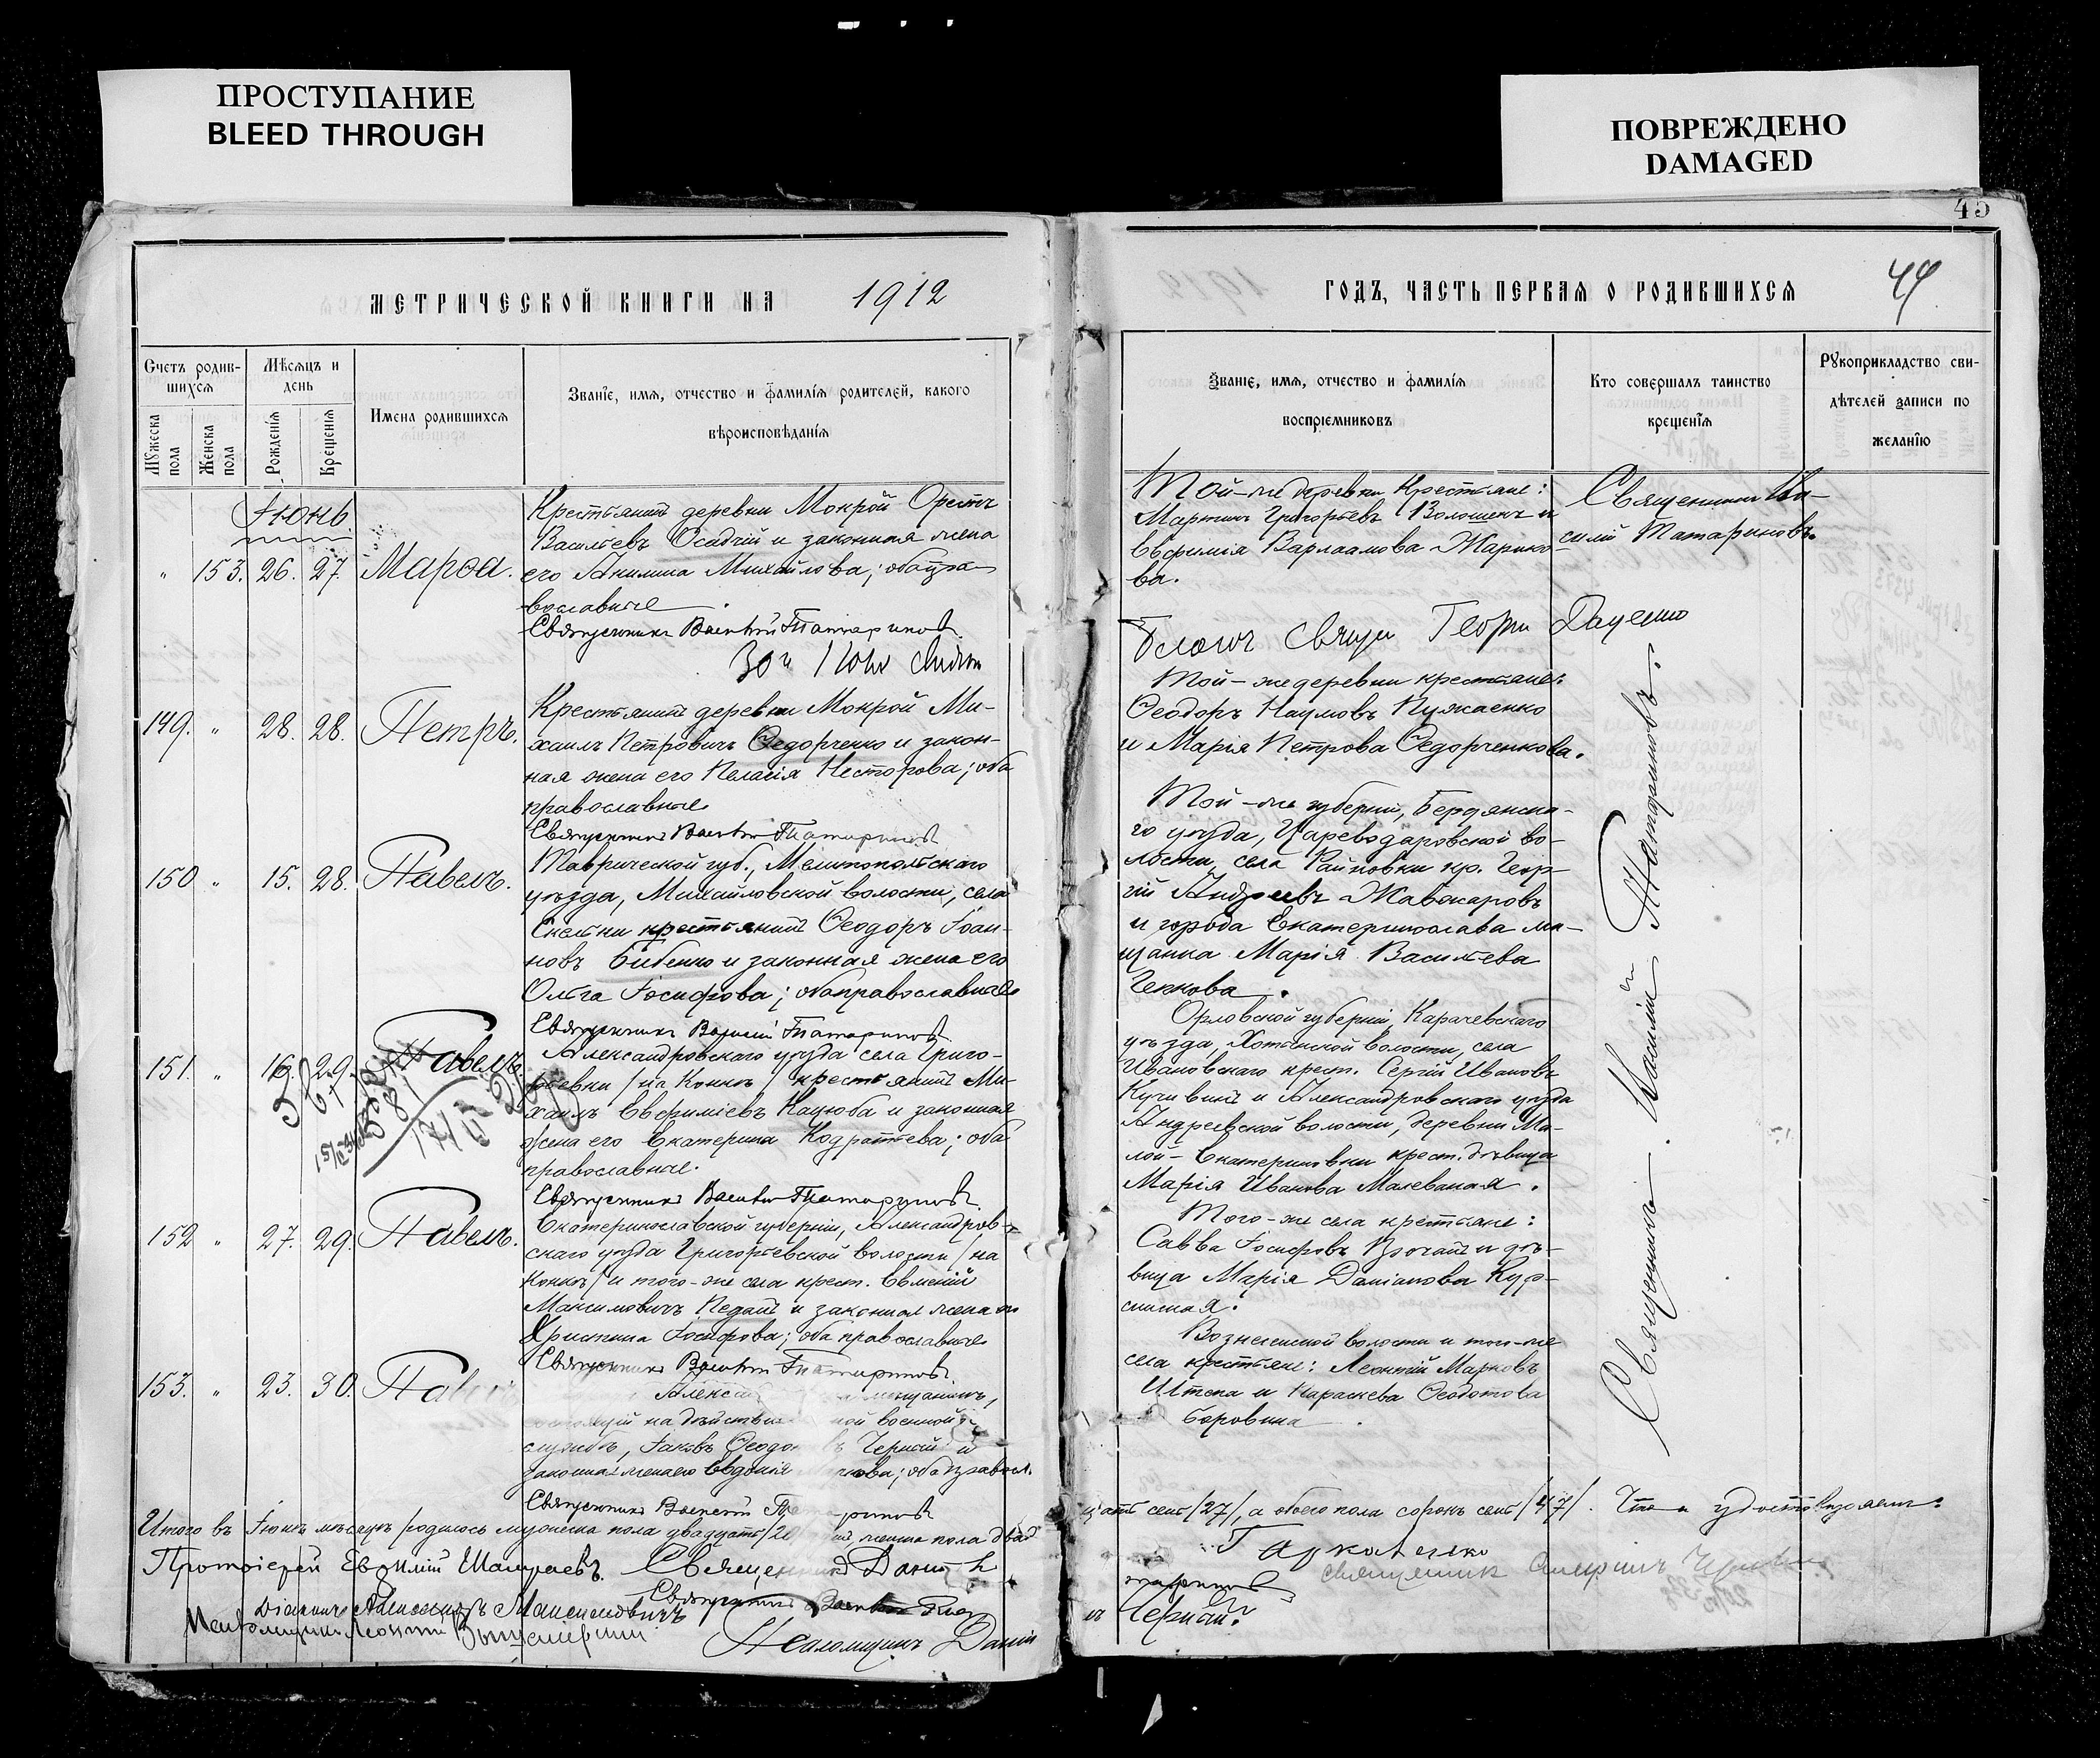 ПРОСТУПАНИЕ
BLEED THROUGH
ПОВРЕЖДЕНО
DAMAGED
45
МЕТРИЧЕСКОЙ КНИГИ НА 1912
ГОДЪ, ЧАСТЬ ПЕРВАЯ О РОДИВШИХСЯ
44
Счетъ родив-
шихся
Мѣсяцъ и
день
Мужеска
пола
Женска
пола
Рожденія
Крещенія
Имена родившихся
Званіе, имя, отчество и фамилія родителей, какого
вѣроисповѣданія
Званіе, имя, отчество и фамилія
воспріемниковъ
Кто совершалъ таинство
крещенія
Рукоприкладство сви-
дѣтелей записи по
желанію
Іюнь
" 153. 26. 27. Марѳа.
Крестьянинъ деревни Мокрой Орестъ
Васильевъ Осадчій и законная жена
его Акилина Михайлова; оба пра-
вославные.
Священникъ Василій Татариновъ.
Той-же деревни крестьяне:
Мартинъ Григорьевъ Волошенъ и
Евфимія Варлаамова Жарико-
ва.
Священникъ Ва-
силій Татариновъ.
Благоч. Свящ. Георгій Даценко
149. " 28. 28. Петръ.
Крестьянинъ деревни Мокрой Ми-
хаилъ Петровичъ Ѳедорченко и закон-
ная жена его Пелагія Несторова; оба
православные
Священникъ Василій Татариновъ
Той-же деревни крестьяне:
Ѳеодоръ Наумовъ Пужаенко
и Марія Петрова Ѳедорченкова.
150 " 15. 28. Павелъ.
Таврической губ., Мелитопольскаго
уѣзда, Михайловской волости, села
Скельки крестьянинъ Ѳеодоръ Іоан-
новъ Бибенко и законная жена его
Ольга Іосифова; оба православные
Священникъ Василій Татариновъ
Той-же губерніи, Бердянска-
го уѣзда, Цареводаровской во-
лости, села Райновки кр. Геор-
гій Андреевъ Жавжаровъ
и города Екатеринослава мѣ-
щанка Марія Васильева
Чепкова.
151. " 16. 29. Павелъ.
Александровскаго уѣзда села Григо-
рьевки /на Конкѣ/ крестьянинъ Ми-
хаилъ Евфиміевъ Кацюба и законная
жена его Екатерина Кодратьева; оба
православные.
Священникъ Василій Татариновъ
Орловской губерніи, Карачевскаго
уѣзда, Хотынской волости, села
Ивановскаго крест. Сергій Ивановъ
Кучивинъ и Александровскаго уѣзда
Андреевской волости, деревни Ма-
лой-Екатериновки крест. дѣвица
Марія Иванова Малеваная.
152 " 27. 29. Павелъ.
Екатеринославской губерніи, Александров-
скаго уѣзда Григорьевской волости /на
Конкѣ/ и того-же села крест. Евменій
Максимовичъ Педанъ и законная жена его
Христина Іосифова; оба православные
Священникъ Василій Татариновъ.
Того-же села крестьяне:
Савва Іосифовъ и дѣ-
вица Марія Даміанова Кур-
синая.
153. " 23. 30. Павелъ
Алекса мѣщанинъ,
на дѣйстви ной военной
службѣ, Іаковъ Ѳеодо въ Черный и
законная жена его Евдокія ; оба правосл.
Священникъ Василій Татариновъ
Вознесенской волости и того-же
села крестьяне: Леонтій Марковъ
Штепа и Параскева Ѳеодотова
Боровика
Священникъ Василій Татариновъ.
Итого въ Іюнѣ мѣсяцѣ родилось мужеска пола двадцать /20/ женска пола двад-
цать семь /27/, а обоего пола сорокъ семь /47/. Что и удостовѣряемъ:
Протоіерей Евфимій Священникъ
Священникъ
Діаконъ Александръ Максимовичъ Священникъ Василій
Псаломщикъ Леонтій
Псаломщикъ
Черный